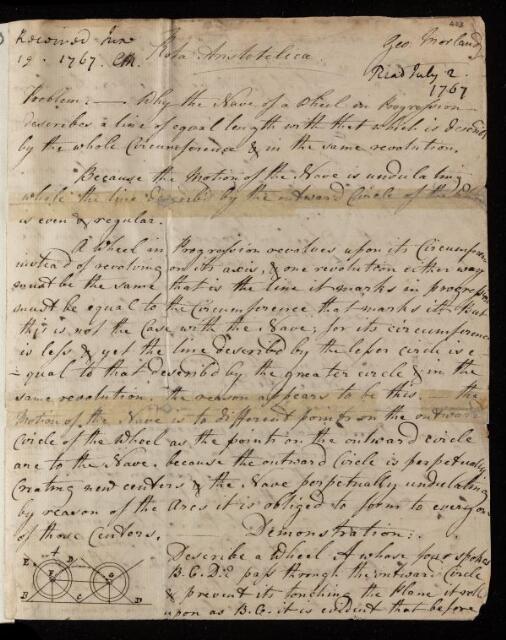 Received June
19. 1767. CM
Rota Aristotelica.
Geo. Mosland
Read July 2.
1767
Problem: — Why the Nave of a Wheel in Progression
describes a line of equal length with that which is describ'd
by the whole Circumference & in the same revolution.
Because the Motion of the Nave is undulating
whilst the line describ'd by the outward Circle of the Wheel
is even & regular.
A Wheel in Progression revolves upon its Circumference
instead of revolving on its axis, & one revolution either way
must be the same that is the line it marks in progression
must be equal to the Circumference that marks it. But
this is not the Case with the Nave; for its circumference
is less & yet the line described by the lesser circle is e-
qual to that described by the greater circle & in the
same revolution. the reason appears to be this. — the
Motion of the Nave is to different points on the outward
Circle of the Wheel as the points on the outward circle
are to the Nave, because the outward Circle is perpetually
Creating new centers & the Nave perpetually undulating
by reason of the Arcs it is obliged to form to every one
of those Centers.
Demonstration:.
Describe a Wheel A whose four spokes
B.C.D.E pass through the outward Circle
& prevent its touching the Plane it roll
upon as B.C. it is evident that before
E
D
F
B
C
D